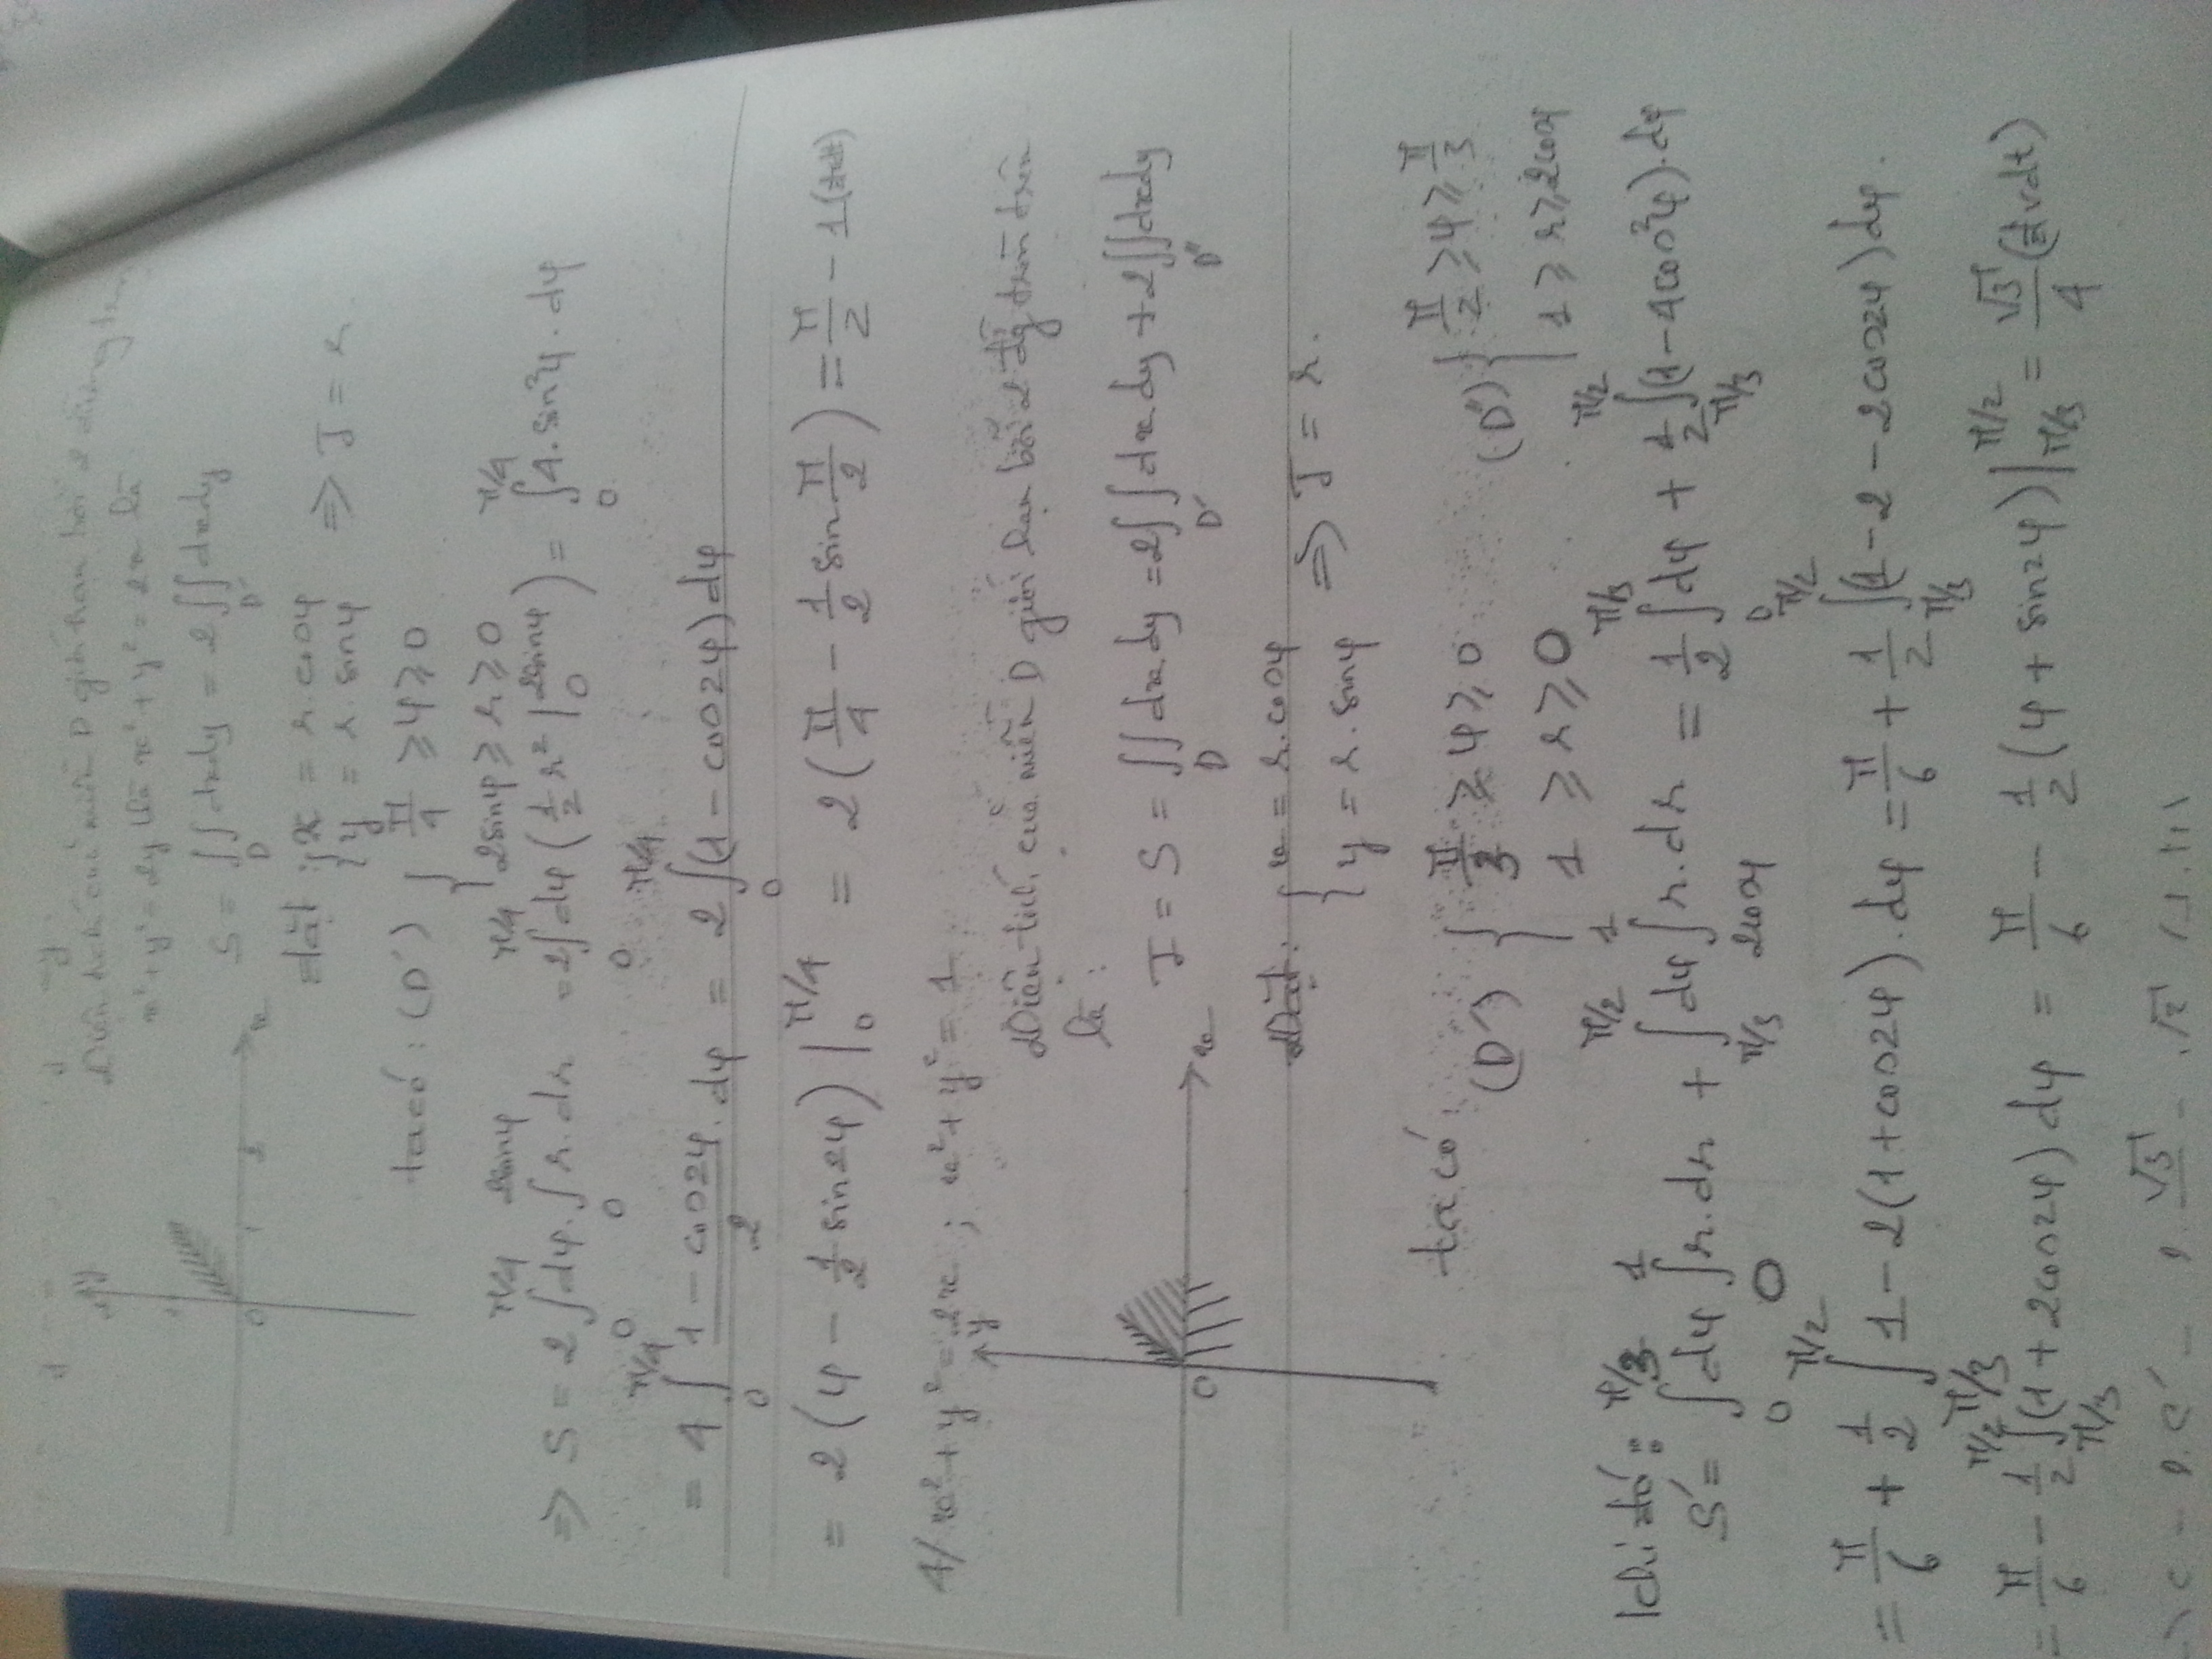 y
Diện tích của miền D giới hạn bởi 2 đường
x² + y² = 2y và x² + y² = 2x là
S = ∬_D dxdy = 2∬_D' dxdy
0 1 2 x
đặt : { x = r.cosφ
y = r.sinφ ⇒ J = r.
ta có : (D') { π/4 ≥ φ ≥ 0
2sinφ ≥ r ≥ 0
⇒ S = 2∫_0^{π/4} dφ.∫_0^{2sinφ} r.dr = 2∫_0^{π/4} dφ (1/2 r² |_0^{2sinφ}) = ∫_0^{π/4} 4.sin²φ.dφ
= 4∫_0^{π/4} (1 - cos2φ)/2 . dφ = 2∫_0^{π/4} (1 - cos2φ)dφ
= 2(φ - 1/2 sin2φ)|_0^{π/4} = 2(π/4 - 1/2 sin π/2) = π/2 - 1
4/ x² + y² = 2x ; x² + y² = 1
y
Diện tích của miền D giới hạn bởi 2 đg tròn trên
là :
I = S = ∬_D dxdy = 2∬_D' dxdy + 2∬_D" dxdy
0 x
Đặt : { x = r.cosφ
y = r.sinφ ⇒ J = r.
ta có :
(D') { π/3 ≥ φ ≥ 0 (D") { π/2 ≥ φ ≥ π/3
1 ≥ r ≥ 0 1 ≥ r ≥ 2cosφ
Khi đó :
S' = ∫_0^{π/3} dφ ∫_0^1 r.dr + ∫_{π/3}^{π/2} dφ ∫_{2cosφ}^1 r.dr = 1/2 ∫_0^{π/3} dφ + 1/2 ∫_{π/3}^{π/2} (1 - 4cos²φ).dφ
= π/6 + 1/2 ∫_{π/3}^{π/2} 1 - 2(1 + cos2φ).dφ = π/6 + 1/2 ∫_{π/3}^{π/2} (1 - 2 - 2cos2φ)dφ.
= π/6 - 1/2 ∫_{π/3}^{π/2} (1 + 2cos2φ)dφ = π/6 - 1/2 (φ + sin2φ)|_{π/3}^{π/2} = √3/4 (đvdt)